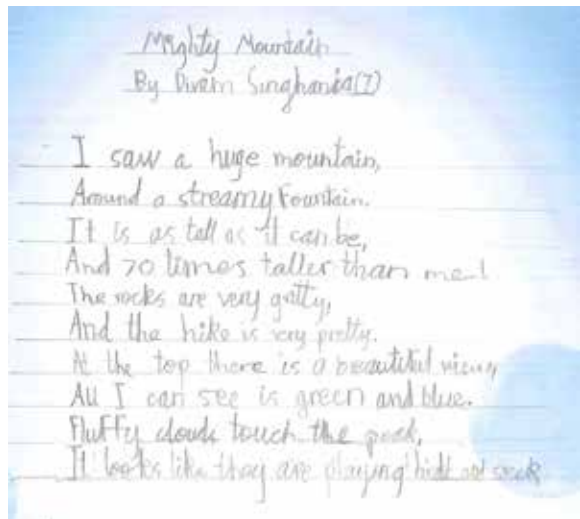 Mighty Mountain
By Divam Singhania(7)
I saw a huge mountain,
Around a streamy Fountain.
It is as tall as it can be,
And 70 times taller than me!
The rocks are very
And the hike is very pretty.
At the top there is a beautiful view,
All I can see is green and blue.
Fluffy clouds touch the peak,
It looks like they are playing hide and seek